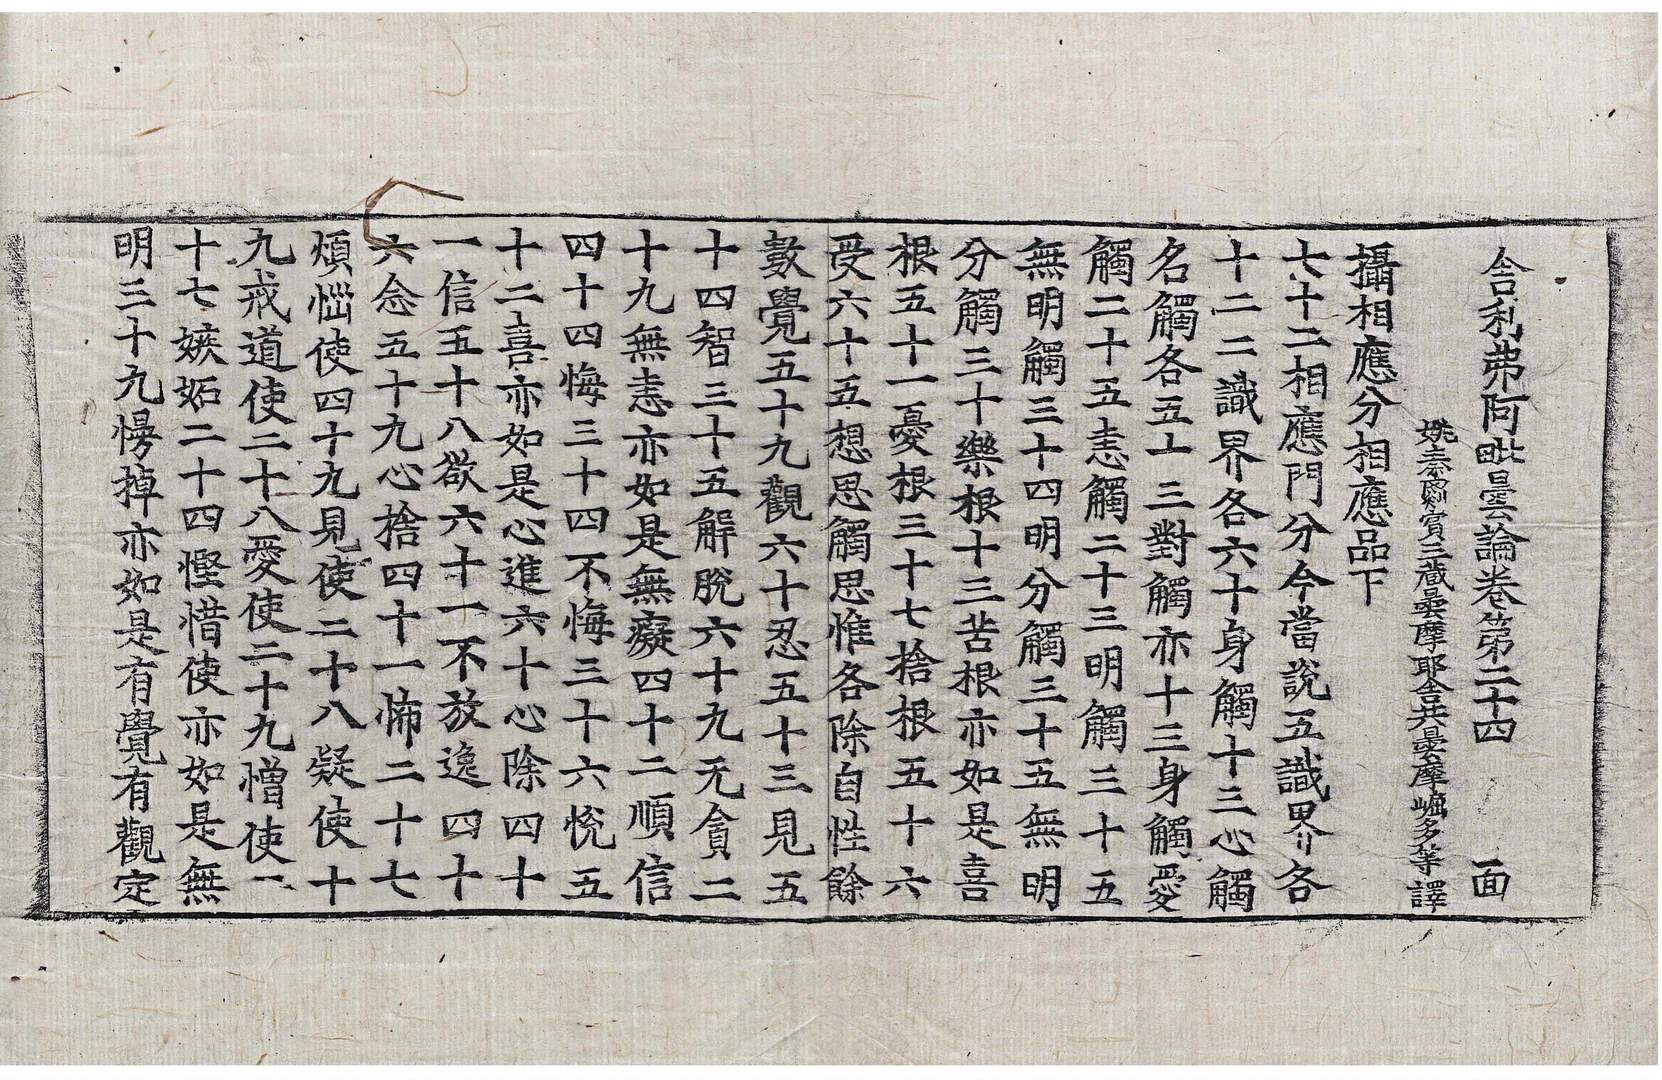 舎利弗阿毗曇論卷第二十四　　面
姚秦罽賓三藏曇摩耶舎共曇摩崛多等譯
攝相應分相應品下
七十二相應門分今當說五識界各
十二二識界各六十身觸十三心觸
名觸各五十三對觸亦十三身觸愛
觸二十五恚觸二十三明觸三十五
無明觸三十四明分觸三十五無明
分觸三十樂根十三苦根亦如是喜
根五十一憂根三十七捨根五十六
受六十五想思觸思惟各除自性餘
數覺五十九觀六十忍五十三見五
十四智三十五解脫六十九无貪二
十九無恚亦如是無癡四十二順信
四十四悔三十四不悔三十六悅五
十二喜亦如是心進六十心除四十
一信五十八欲六十一不放逸四十
六念五十九心捨四十一怖二十七
煩惱使四十九見使二十八疑使十
九戒道使二十八愛使二十九憎使一
十七嫉妬二十四慳惜使亦如是無
明三十九慢掉亦如是有覺有觀定